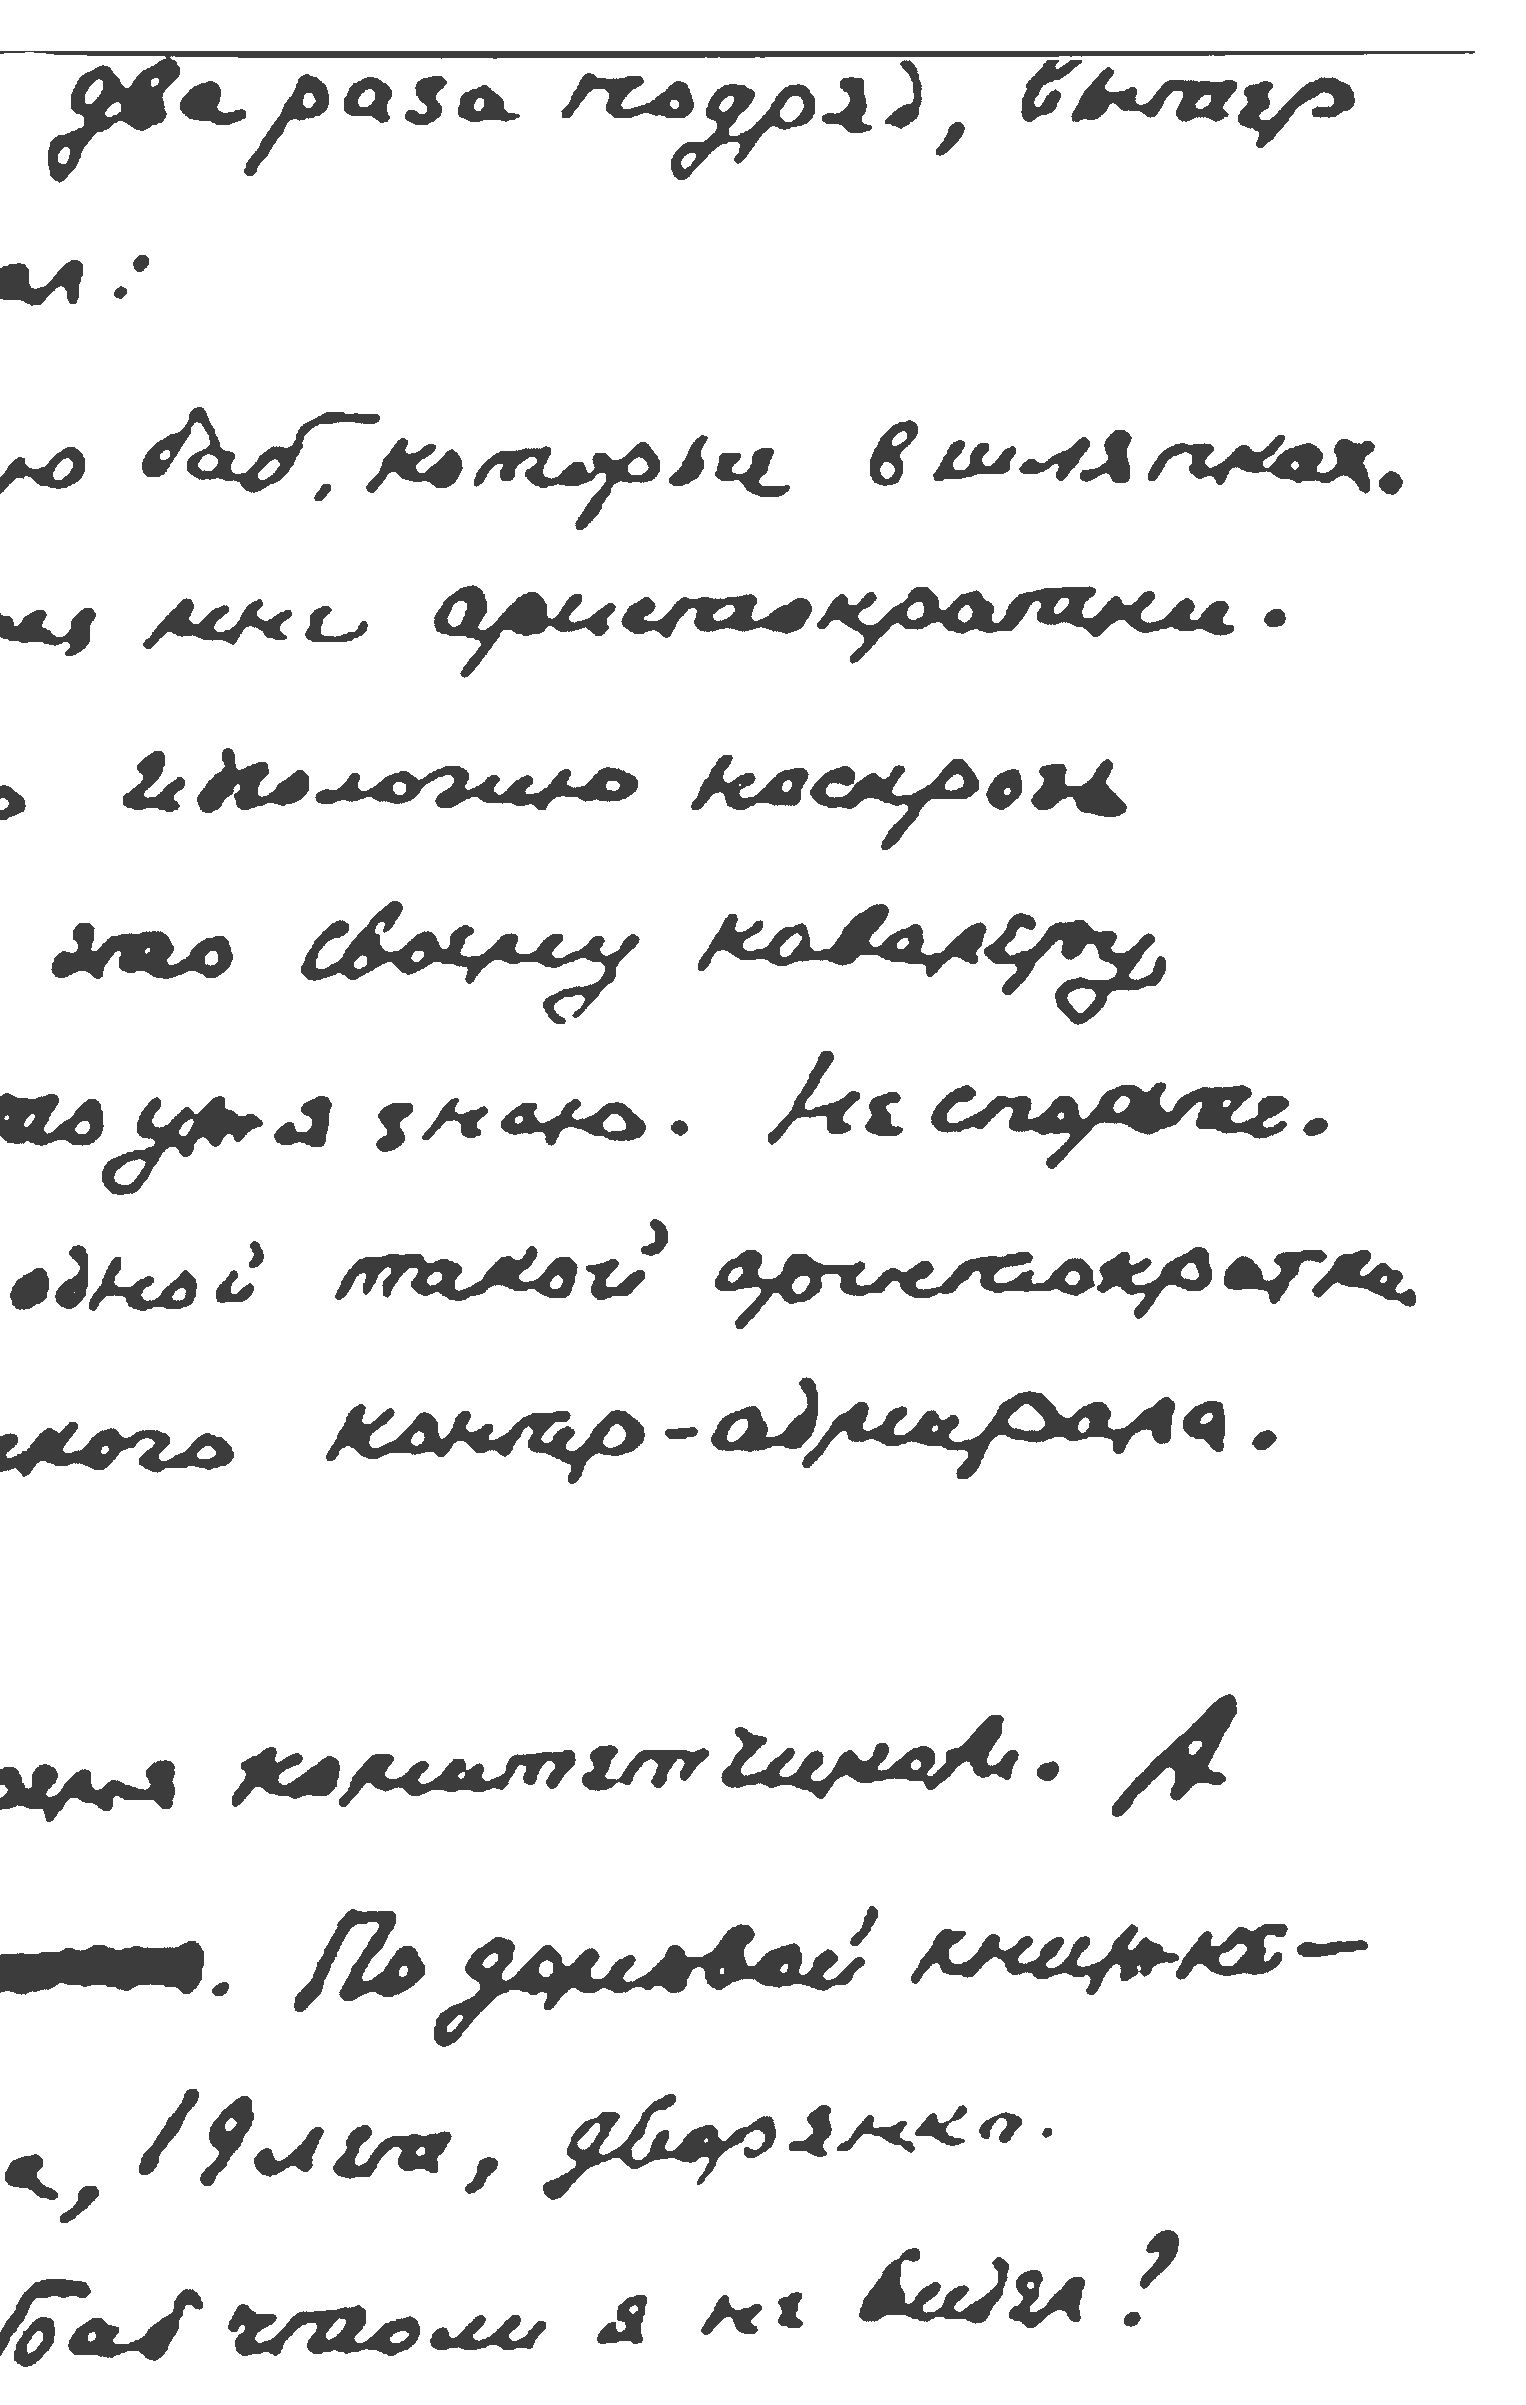 два раза подряд, вытер
ал:
ю баб, которые в шляпках.
мне аристократки.
идеологию насквозь
что своему кавалеру
уж я знаю. Не спорьте.
одной такой аристократка
контр-адмирала.
время комитетчиком. А
. По домовой книжке—
а, 19 лета, дворянка.
баб что ли я не видел?